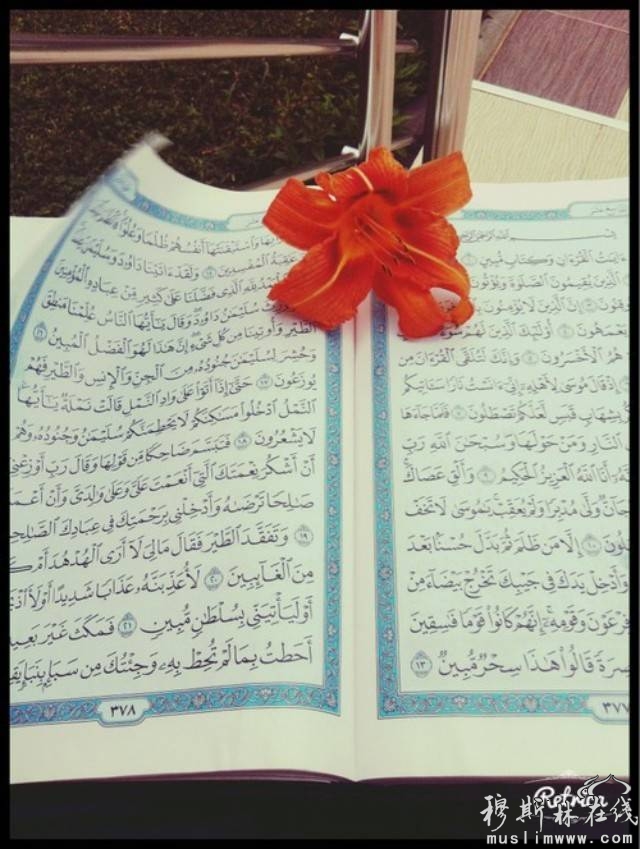 ءَايَٰتُ ٱلْقُرْءَانِ وَكِتَابٍ مُّبِينٍ ١
ٱلَّذِينَ يُقِيمُونَ ٱلصَّلَوٰةَ وَيُؤْتُونَ
إِنَّ ٱلَّذِينَ لَا يُؤْمِنُونَ
يَعْمَهُونَ ٤ أُو۟لَٰٓئِكَ ٱلَّذِينَ لَهُمْ سُوٓءُ
هُمُ ٱلْأَخْسَرُونَ ٥ وَإِنَّكَ لَتُلَقَّى ٱلْقُرْءَانَ مِن
إِذْ قَالَ مُوسَىٰ لِأَهْلِهِۦٓ إِنِّىٓ ءَانَسْتُ نَارًا سَـَٔاتِيكُم
بِشِهَابٍ قَبَسٍ لَّعَلَّكُمْ تَصْطَلُونَ ٧ فَلَمَّا جَآءَهَا
ٱلنَّارِ وَمَنْ حَوْلَهَا وَسُبْحَٰنَ ٱللَّهِ رَبِّ
أَنَا ٱللَّهُ ٱلْعَزِيزُ ٱلْحَكِيمُ ٩ وَأَلْقِ عَصَاكَ
جَآنٌّ وَلَّىٰ مُدْبِرًا وَلَمْ يُعَقِّبْ يَٰمُوسَىٰ لَا تَخَفْ
إِلَّا مَن ظَلَمَ ثُمَّ بَدَّلَ حُسْنًۢا بَعْدَ
وَأَدْخِلْ يَدَكَ فِى جَيْبِكَ تَخْرُجْ بَيْضَآءَ مِنْ
فِرْعَوْنَ وَقَوْمِهِۦٓ إِنَّهُمْ كَانُوا۟ قَوْمًا فَٰسِقِينَ
قَالُوا۟ هَٰذَا سِحْرٌ مُّبِينٌ ١٣
٣٧٧
وَٱسْتَيْقَنَتْهَآ أَنفُسُهُمْ ظُلْمًا وَعُلُوًّا
عَٰقِبَةُ ٱلْمُفْسِدِينَ ١٤ وَلَقَدْ ءَاتَيْنَا دَاوُۥدَ وَسُلَيْمَٰنَ
لِلَّهِ ٱلَّذِى فَضَّلَنَا عَلَىٰ كَثِيرٍ مِّنْ عِبَادِهِ ٱلْمُؤْمِنِينَ
سُلَيْمَٰنُ دَاوُۥدَ وَقَالَ يَٰٓأَيُّهَا ٱلنَّاسُ عُلِّمْنَا مَنطِقَ
ٱلطَّيْرِ وَأُوتِينَا مِن كُلِّ شَىْءٍ إِنَّ هَٰذَا لَهُوَ ٱلْفَضْلُ ٱلْمُبِينُ ١٦
وَحُشِرَ لِسُلَيْمَٰنَ جُنُودُهُۥ مِنَ ٱلْجِنِّ وَٱلْإِنسِ وَٱلطَّيْرِ فَهُمْ
يُوزَعُونَ ١٧ حَتَّىٰٓ إِذَآ أَتَوْا۟ عَلَىٰ وَادِ ٱلنَّمْلِ قَالَتْ نَمْلَةٌ يَٰٓأَيُّهَا
ٱلنَّمْلُ ٱدْخُلُوا۟ مَسَٰكِنَكُمْ لَا يَحْطِمَنَّكُمْ سُلَيْمَٰنُ وَجُنُودُهُۥ وَهُمْ
لَا يَشْعُرُونَ ١٨ فَتَبَسَّمَ ضَاحِكًا مِّن قَوْلِهَا وَقَالَ رَبِّ أَوْزِعْنِىٓ
أَنْ أَشْكُرَ نِعْمَتَكَ ٱلَّتِىٓ أَنْعَمْتَ عَلَىَّ وَعَلَىٰ وَٰلِدَىَّ وَأَنْ
صَٰلِحًا تَرْضَىٰهُ وَأَدْخِلْنِى بِرَحْمَتِكَ فِى عِبَادِكَ
١٩ وَتَفَقَّدَ ٱلطَّيْرَ فَقَالَ مَالِىَ لَآ أَرَى ٱلْهُدْهُدَ أَمْ
مِنَ ٱلْغَآئِبِينَ ٢٠ لَأُعَذِّبَنَّهُۥ عَذَابًا شَدِيدًا أَوْ
أَوْ لَيَأْتِيَنِّى بِسُلْطَٰنٍ مُّبِينٍ ٢١ فَمَكَثَ غَيْرَ بَعِيدٍ
أَحَطتُ بِمَا لَمْ تُحِطْ بِهِۦ وَجِئْتُكَ مِن سَبَإٍۭ بِنَبَإٍ
٣٧٨
Retrica
穆斯林在线
muslimwww.com